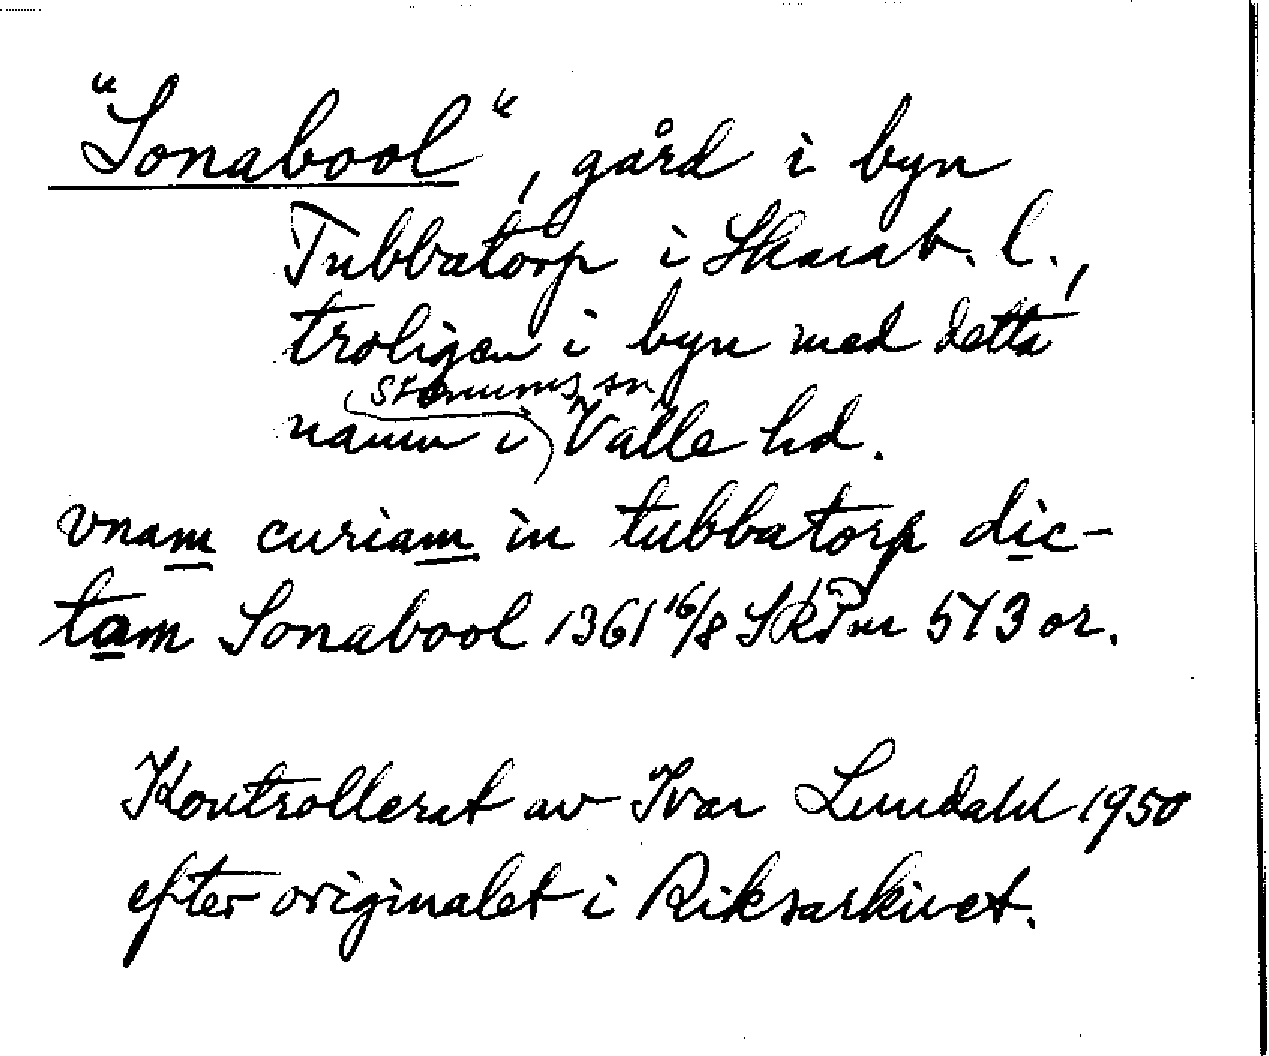 "Sonabool", gård i byn
Tubbatorp i Skarab. l.,
troligen i byn med detta
Stenums sn,
namn i Valle hd.
vnam curiam in tubbatorp dic-
tam Sonabool 1361 16/8 SRPm 513 or.
Kontrollerat av Ivar Lundahl 1950
efter originalet i Riksarkivet.